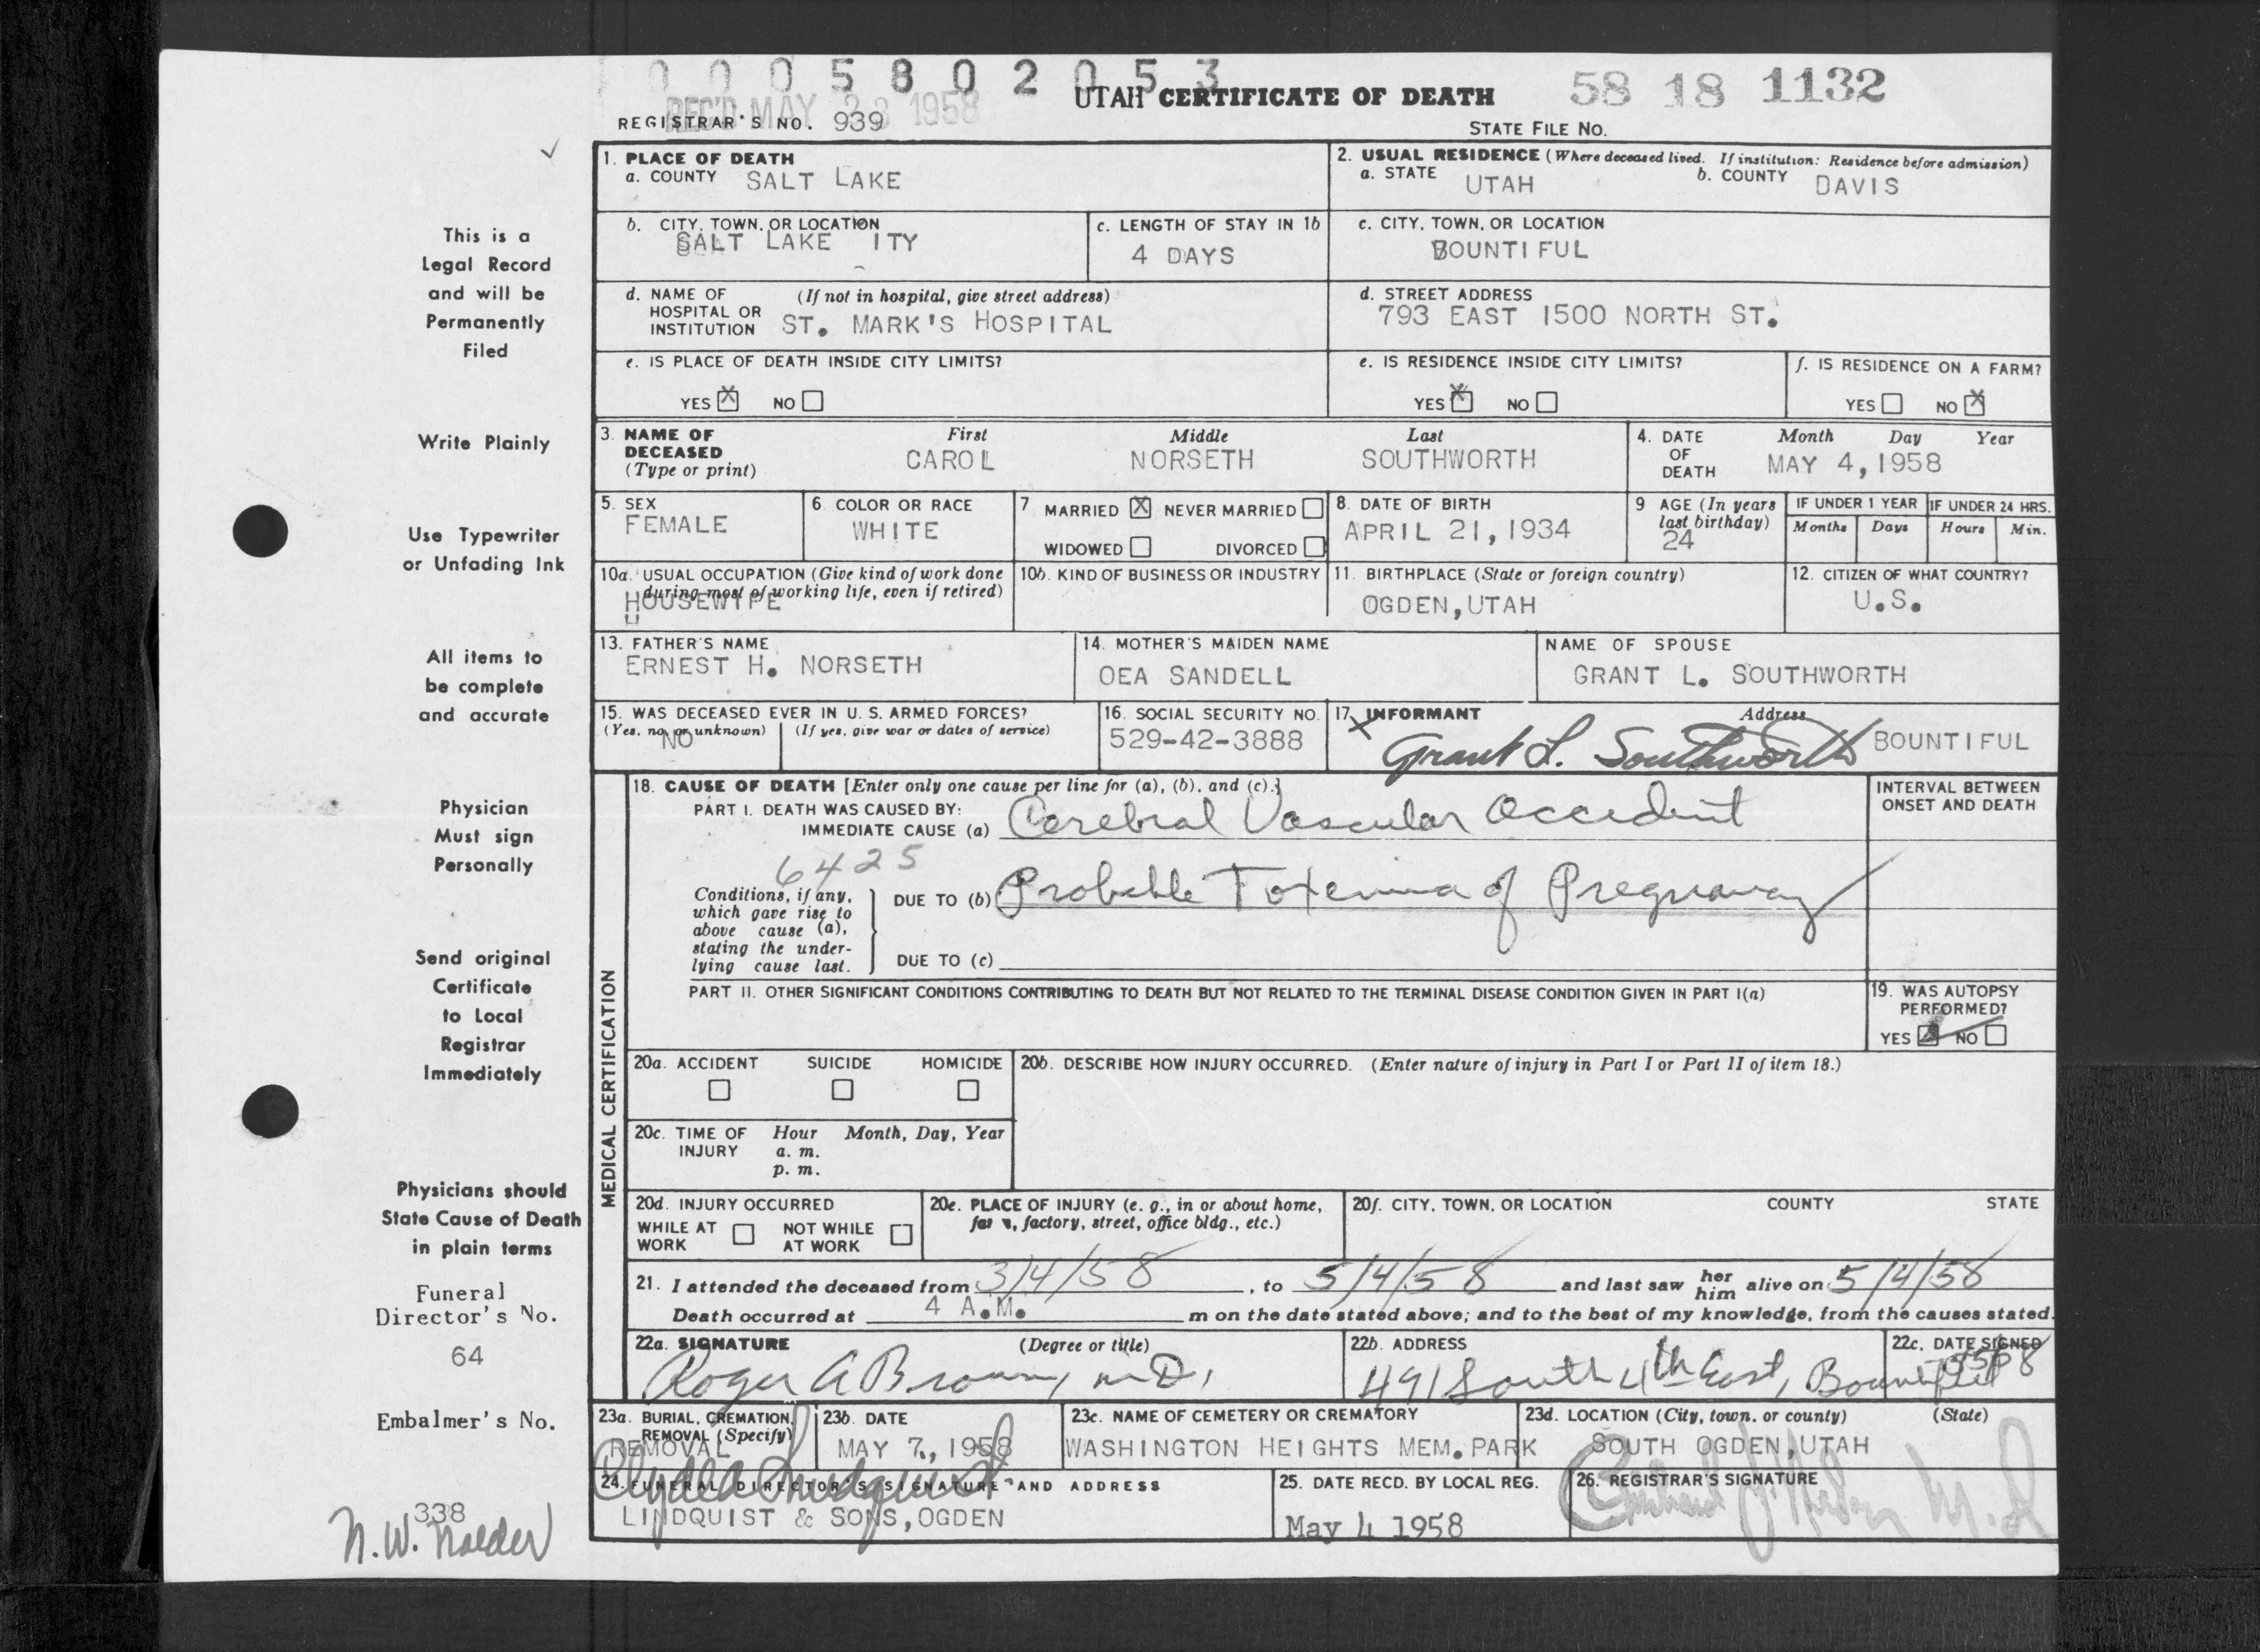 0005802053
REC'D MAY 1958 UTAH CERTIFICATE OF DEATH 58 18 1132
REGISTRAR'S NO. 939 STATE FILE NO.
1. PLACE OF DEATH
a. COUNTY SALT LAKE
2. USUAL RESIDENCE (Where deceased lived. If institution: Residence before admission)
a. STATE UTAH b. COUNTY DAVIS
b. CITY, TOWN, OR LOCATION
SALT LAKE ITY
c. LENGTH OF STAY IN 1b
4 DAYS
c. CITY, TOWN, OR LOCATION
BOUNTIFUL
d. NAME OF HOSPITAL OR INSTITUTION (If not in hospital, give street address)
ST. MARK'S HOSPITAL
d. STREET ADDRESS
793 EAST 1500 NORTH ST.
e. IS PLACE OF DEATH INSIDE CITY LIMITS?
YES X NO
e. IS RESIDENCE INSIDE CITY LIMITS?
YES X NO
f. IS RESIDENCE ON A FARM?
YES NO X
3. NAME OF DECEASED (Type or print)
First Middle Last
CAROL NORSETH SOUTHWORTH
4. DATE OF DEATH Month Day Year
MAY 4, 1958
5. SEX
FEMALE
6. COLOR OR RACE
WHITE
7. MARRIED X NEVER MARRIED
WIDOWED DIVORCED
8. DATE OF BIRTH
APRIL 21, 1934
9 AGE (In years last birthday)
24
IF UNDER 1 YEAR IF UNDER 24 HRS.
Months Days Hours Min.
10a. USUAL OCCUPATION (Give kind of work done during most of working life, even if retired)
HOUSEWIFE
10b. KIND OF BUSINESS OR INDUSTRY
11. BIRTHPLACE (State or foreign country)
OGDEN, UTAH
12. CITIZEN OF WHAT COUNTRY?
U.S.
13. FATHER'S NAME
ERNEST H. NORSETH
14. MOTHER'S MAIDEN NAME
OEA SANDELL
NAME OF SPOUSE
GRANT L. SOUTHWORTH
15. WAS DECEASED EVER IN U. S. ARMED FORCES?
(Yes, no, or unknown) (If yes, give war or dates of service)
NO
16. SOCIAL SECURITY NO.
529-42-3888
17. INFORMANT Address
X Grant L. Southworth BOUNTIFUL
MEDICAL CERTIFICATION
18. CAUSE OF DEATH [Enter only one cause per line for (a), (b), and (c).]
PART I. DEATH WAS CAUSED BY:
IMMEDIATE CAUSE (a) Cerebral Vascular Accident
INTERVAL BETWEEN ONSET AND DEATH
6425
Conditions, if any, which gave rise to above cause (a), stating the underlying cause last.
DUE TO (b) Probable Toxemia of Pregnancy
DUE TO (c)
PART II. OTHER SIGNIFICANT CONDITIONS CONTRIBUTING TO DEATH BUT NOT RELATED TO THE TERMINAL DISEASE CONDITION GIVEN IN PART I(a)
19. WAS AUTOPSY PERFORMED?
YES NO
20a. ACCIDENT SUICIDE HOMICIDE
20b. DESCRIBE HOW INJURY OCCURRED. (Enter nature of injury in Part I or Part II of item 18.)
20c. TIME OF INJURY Hour Month, Day, Year
a. m.
p. m.
20d. INJURY OCCURRED
WHILE AT WORK NOT WHILE AT WORK
20e. PLACE OF INJURY (e. g., in or about home, factory, street, office bldg., etc.)
20f. CITY, TOWN, OR LOCATION COUNTY STATE
21. I attended the deceased from 3/4/58, to 5/4/58 and last saw her him alive on 5/4/58
Death occurred at 4 A.M. m on the date stated above; and to the best of my knowledge, from the causes stated.
22a. SIGNATURE (Degree or title)
Roger A Brown, M.D.
22b. ADDRESS
491 South 4th East, Bountiful
22c. DATE SIGNED
23a. BURIAL, CREMATION, REMOVAL (Specify)
REMOVAL
23b. DATE
MAY 7, 1958
23c. NAME OF CEMETERY OR CREMATORY
WASHINGTON HEIGHTS MEM. PARK
23d. LOCATION (City, town, or county) (State)
SOUTH OGDEN, UTAH
24. FUNERAL DIRECTOR'S SIGNATURE AND ADDRESS
Lindquist
LINDQUIST & SONS, OGDEN
25. DATE RECD. BY LOCAL REG.
May 4 1958
26. REGISTRAR'S SIGNATURE
M.D
This is a
Legal Record
and will be
Permanently
Filed
Write Plainly
Use Typewriter
or Unfading Ink
All items to
be complete
and accurate
Physician
Must sign
Personally
Send original
Certificate
to Local
Registrar
Immediately
Physicians should
State Cause of Death
in plain terms
Funeral
Director's No.
64
Embalmer's No.
338
N.W. Nalder